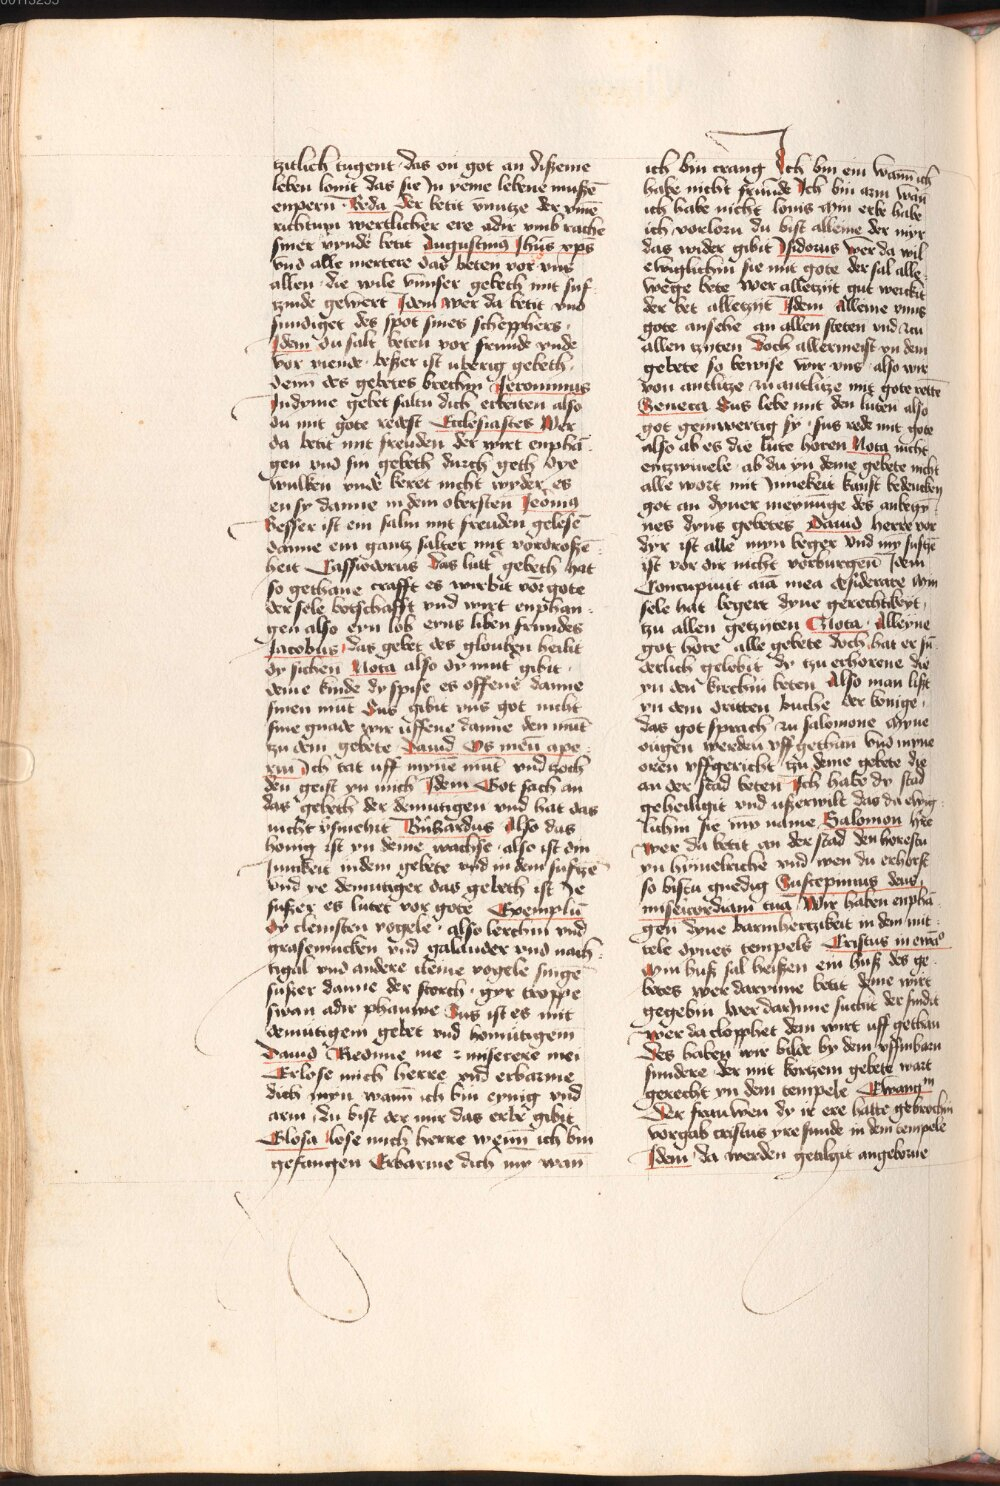 00113255
tzitlich tugent · das on got an dißeme
leben lonit das sie In yeme lebene mußẽ
enpern · Beda Der betit vnnutze der vmẽ
richtum wertlicher ere adir vmb rache
siner vynde betit Augustinus Jhũs xp̃s
vnd alle mertere das beten vor vns
allen · die wile vnnser gebeth mit suf-
tzinde gewert Idem Wer da betit vnd
sundiget des spot sines scheppers ·
Idem Du salt beten vor frunde vnde
vor viende · beßer ist uberig gebeth ·
denn des gebetes brechin Jeronimus
In dyme gebet saltu dich erbeiten also
du mit gote redest Ecclesiastes Wer
da betit mit freuden der wirt enphã-
gen vnd sin gebeth durch geth dye
wulken vnde keret nicht wyder es
en sy danne in dem obersten Jeõnimꝯ
Besser ist ein salm mit freuden gelesẽ
danne ein gantz salter mit vordroßẽ-
heit Cassiodorus Das lutt gebeth hat
so gethane crafft es wirbit vor gote
der sele botschafft vnd wirt enphan-
gen also eyn lob eyns liben frundes
Jacobus das gebet des glouben heilit
dy sichen Nota also dy mut gibit ·
deme kinde dy spise es offene danne
sinen mũt Sus gibit vns got nicht
sine gnade wir uffene danne den mũt
zu dem gebete Dauid Os meũ ape-
rui Ich tat uff mynẽ mũt vnd tzoch
den geist yn mich Idem Got sach an
das gebeth der demutigen vnd hat das
nicht vsmehit Bñhardus Also das
honig ist yn deme wachse · also ist din
Innikeit in dem gebete vnd in dem sufftzẽ
vnd ye demutiger das gebeth ist Je
sußer es lutet vor gote Exemplũ
Dy cleinsten vogele · also lerchin vnd
grasemucken vnd galander vnd nach-
tigal vnd andere cleine vogele singẽ
sußer danne der storch · gyr troppe
swan adir phauwe Sus ist es mit
demutigem gebet vnd homutigem
Dauid Redime me ⁊ miserere mei
Erlose mich herre vnd erbarme
dich myn wann ich bin eynig vnd
arm · du bist der mir das erbe gibit
Glosa lose mich herre wenn ich bin
gefangen Erbarme dich my wan
ich bin crang Ich bin ein wann ich
habe nicht frunde Ich bin arm wan
ich habe nicht lonis Myn erbe habe
ich vorlorn du bist alleine der myr
das wider gibit Isidorus Wer da wil
ewiglichin sie mit gote der sal alle-
wege bete wer alletzijt gut werckit
der bet alletzijt Idem Alleine vnns
gote ansehe an allen steten vnd zcu
allen tzijten Doch allermeist yn dem
gebete so bewise wir vns · also wir
von antlitze zu antlitze mit gote rettẽ
Seneca Sus lebe mit den luten also
got genwertig sy · sus rede mit gote
also ab es die lute horen Nota nicht
entzwiuele · ab du yn deme gebete nicht
alle wort mit Innekeit kanst bedencken
got an dyner meynũge des anbegy-
nes dyns gebetes Dauid herre vor
dyr ist alle myn beger vnd my suftzẽ
ist vor dir nicht vorburgen Idem
Concupiuit aĩa mea desiderare Myn
sele hat begert dyne gerechtikeyt ·
tzu allen getzijten Nota · Alleyne
got hore alle gebete doch hat er sũ-
derlich gelobit dy tzu erhorene die
yn den kirchin beten Also man list
yn dem dritten buche der konige ·
das got sprach zu salomone Myne
ougen werden uff gethan vnd myne
oren uffgericht tzu deme gebete die
an der stad beten Ich habe dy stad
geheiligit vnd ußerwilt das du ewig-
lichin sie my name Salomon h̃re
Wer da betit an der stad den horestu
yn himelriche vnd wen du erhorst
so bistu gnedig Suscepimus deus
misericordiam tuã Wir haben enphã-
gen dyne barmhertzikeit in dem mit-
tele dynes tempels Cristus in ewãg̃º
Myn huß sal heißen ein huß des ge-
betes wer darynne betit deme wirt
gegebin Wer darInne suchit der findit
Wer da clopphet dem wirt uff gethan
Des haben wir bilde by dem uffinbarn
sundere der mit kortzem gebete wart
gerecht yn dem tempele Ewangm
Der frauwen dy ir ere hatte gebrochin
vorgab cristus yre sunde in dem tempele
Idem da werden getilgit angeborne